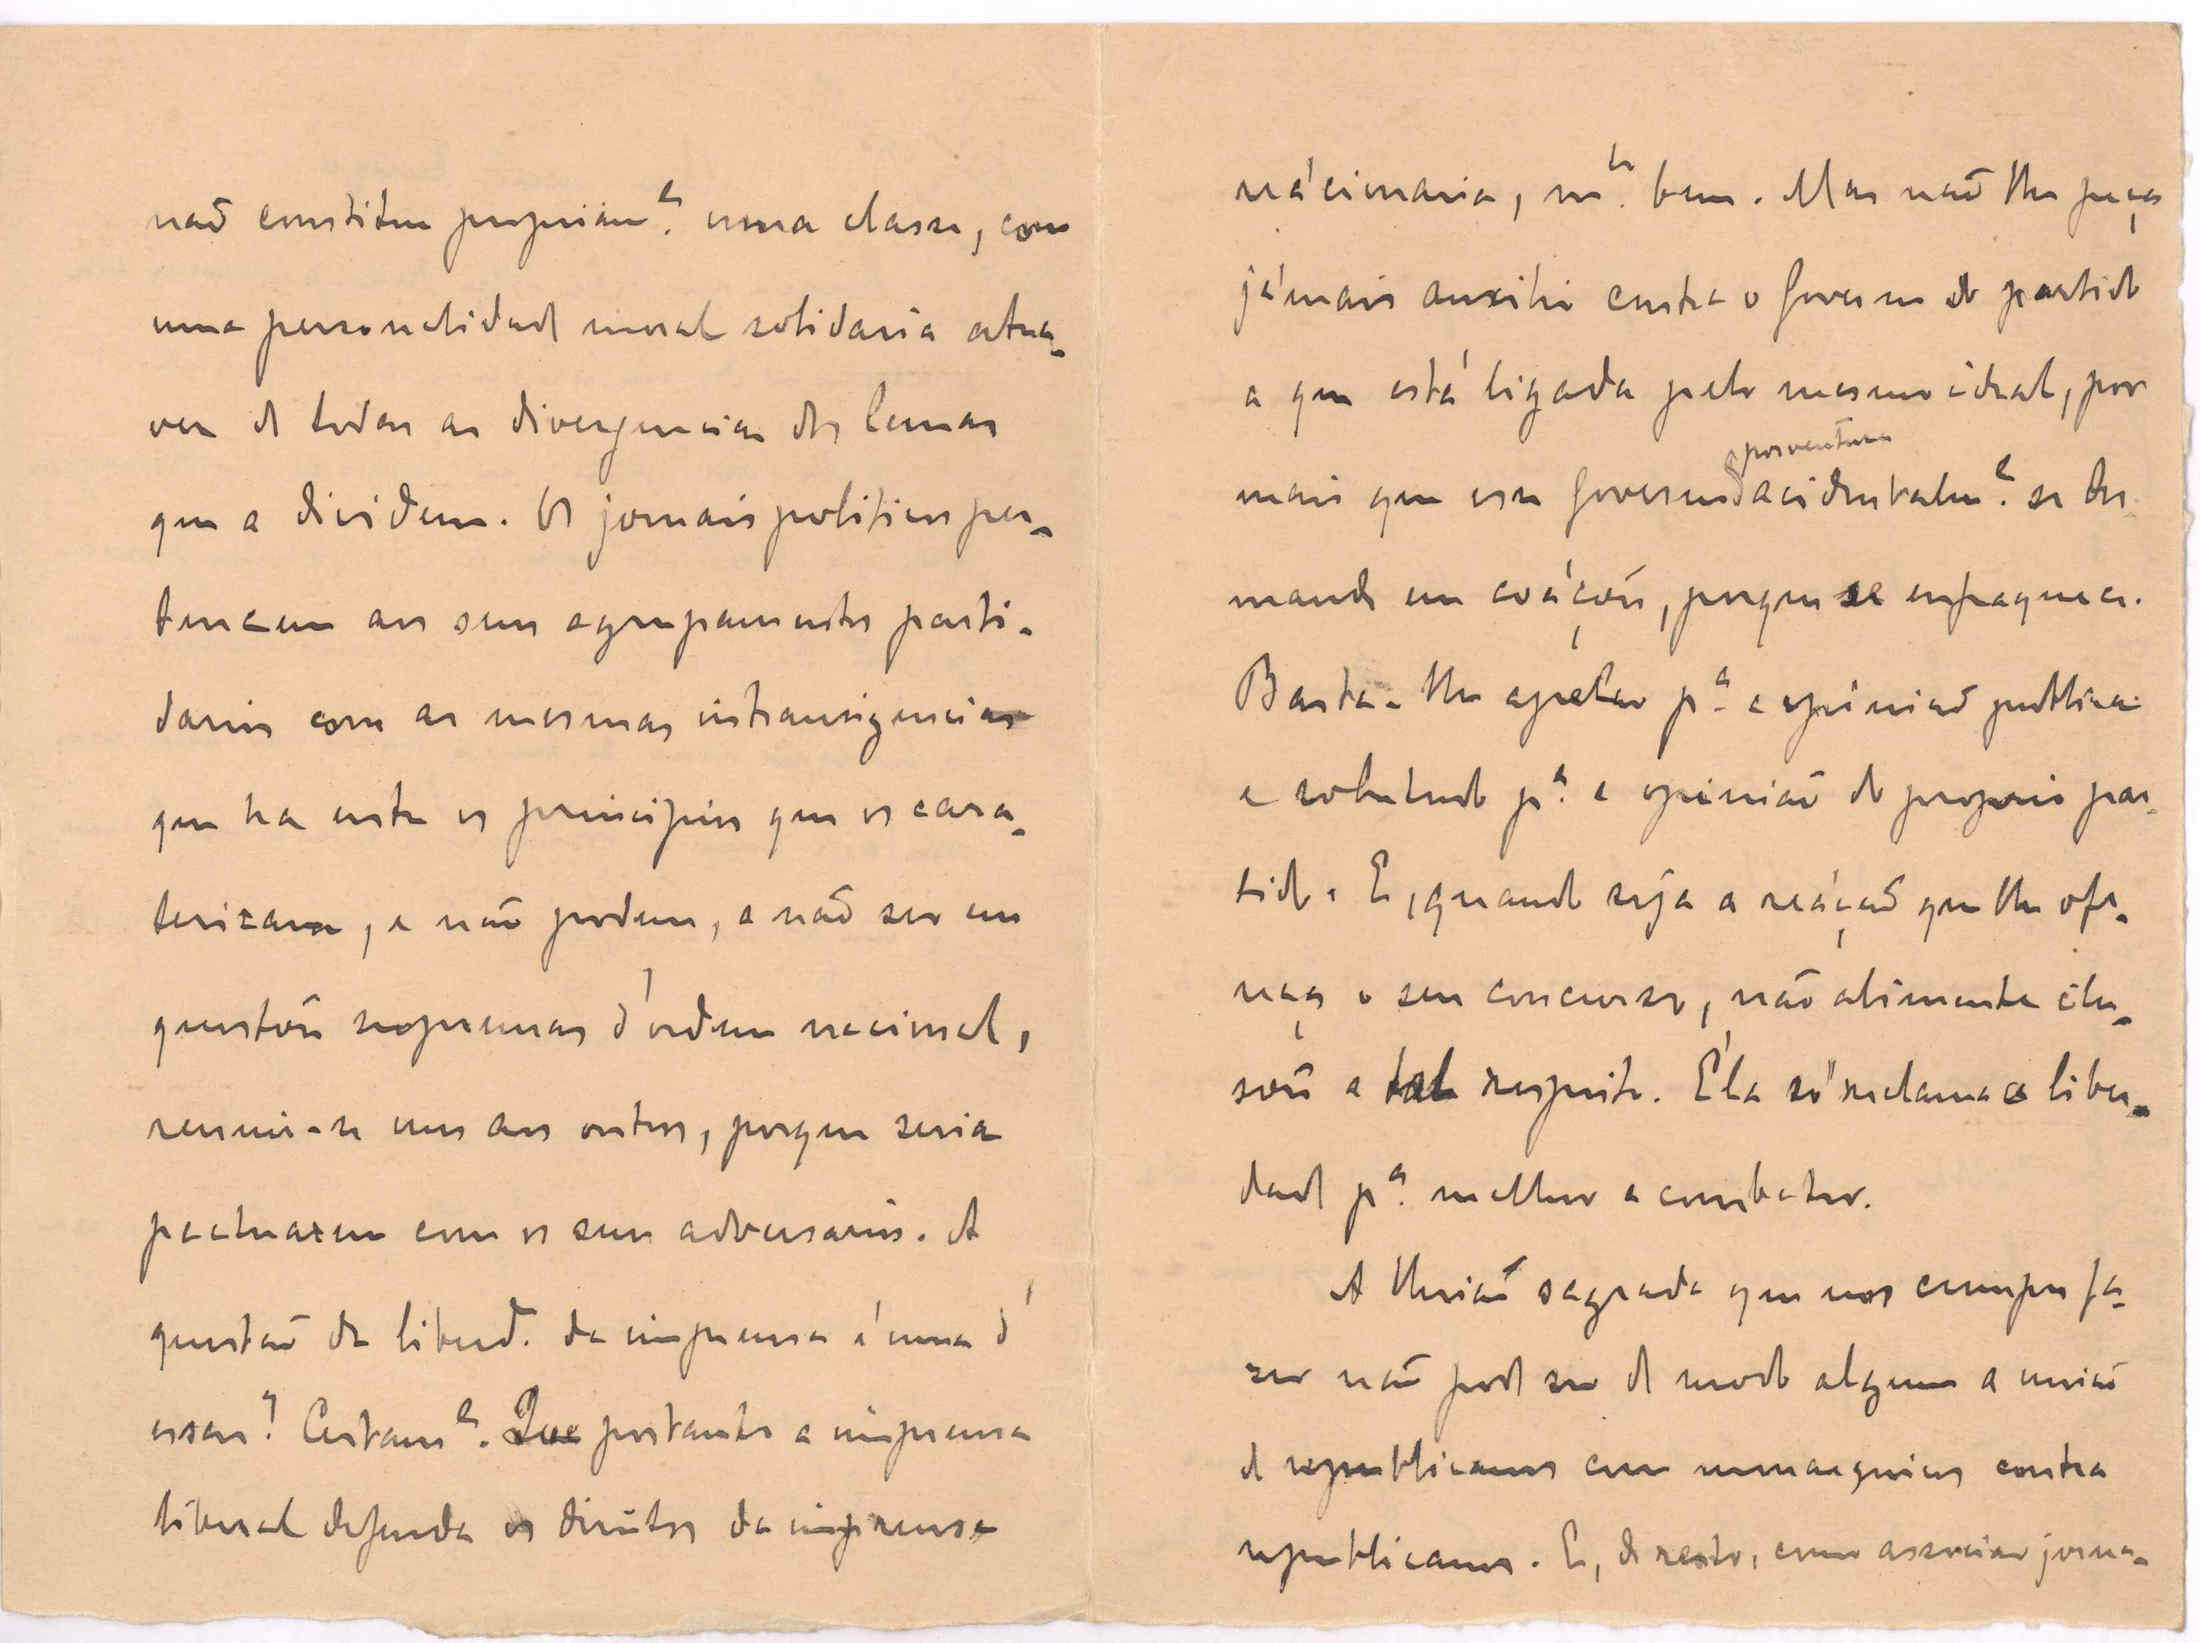 naõ constitue propriam.e uma classe, com
uma personalidade moral solidaria atra-
vez de todas as divergencias dos lemas
que a dividem. Os jornais politicos per-
tencem aos seus agrupamentos parti-
darios com as mesmas intransigencias
que ha entre os principios que os cara-
terizam, e não podem, a naõ ser em
questões supremas d'ordem nacional,
reunir-se uns aos outros, porque seria
pactuarem com os seus adversarios. A
questaõ da liberd. da imprensa é uma d'
essas? Certam.e. Que portanto a imprensa
liberal defenda os direitos da imprensa
reácionaria, m.to bem. Mas naõ lhe peça
jámais auxilio contra o Governo do partido
a que está ligada pelo mesmo ideal, por
mais que esse Governo porventura acidentalm.e se des-
mande em coáções, porque se enfraquece.
Basta-lhe apelar p.a a opiniaõ publica
e sobretudo p.a a opinião do proprio par-
tido. E, quando seja a reáçaõ que lhe ofe-
reça o seu concurso, não alimente ilu-
sões a tal respeito. Éla só reclama a liber-
dade p.a melhor a combater.
A União sagrada que nos cumpre fa-
zer não pode ser de modo algum a união
de republicanos com monarquicos contra
republicanos. E, de resto, como associar jorna-